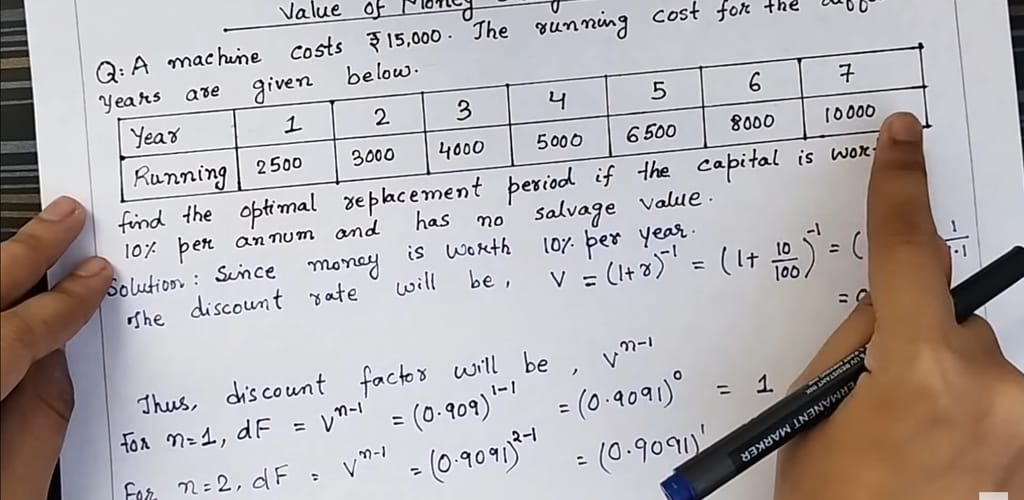 Value of Money
Q: A machine costs ₹15,000. The running cost for the
years are given below.
Year 1 2 3 4 5 6 7
Running 2500 3000 4000 5000 6500 8000 10000
find the optimal replacement period if the capital is
10% per annum and has no salvage value.
Solution: Since money is worth 10% per year.
The discount rate will be, V = (1+r)^-1 = (1+ 10/100)^-1 = (
=
Thus, discount factor will be, V^n-1
for n=1, dF = V^n-1 = (0.909)^1-1 = (0.9091)^0 = 1
For n=2, dF = V^n-1 = (0.9091)^2-1 = (0.9091)^1
PERMANENT MARKER